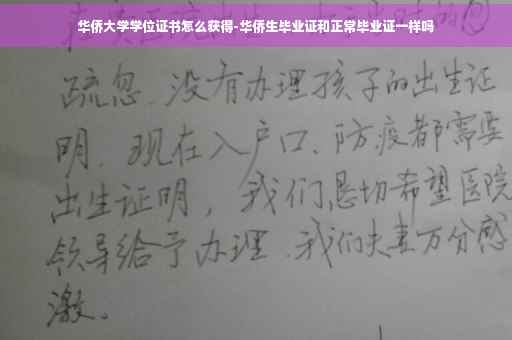 华侨大学学位证书怎么获得-华侨生毕业证和正常毕业证一样吗
疏忽、没有办理孩子的出生证
明、现在入户口、防疫都需要
出生证明，我们恳切希望医院
领导给予办理、我们夫妻万分感
激。